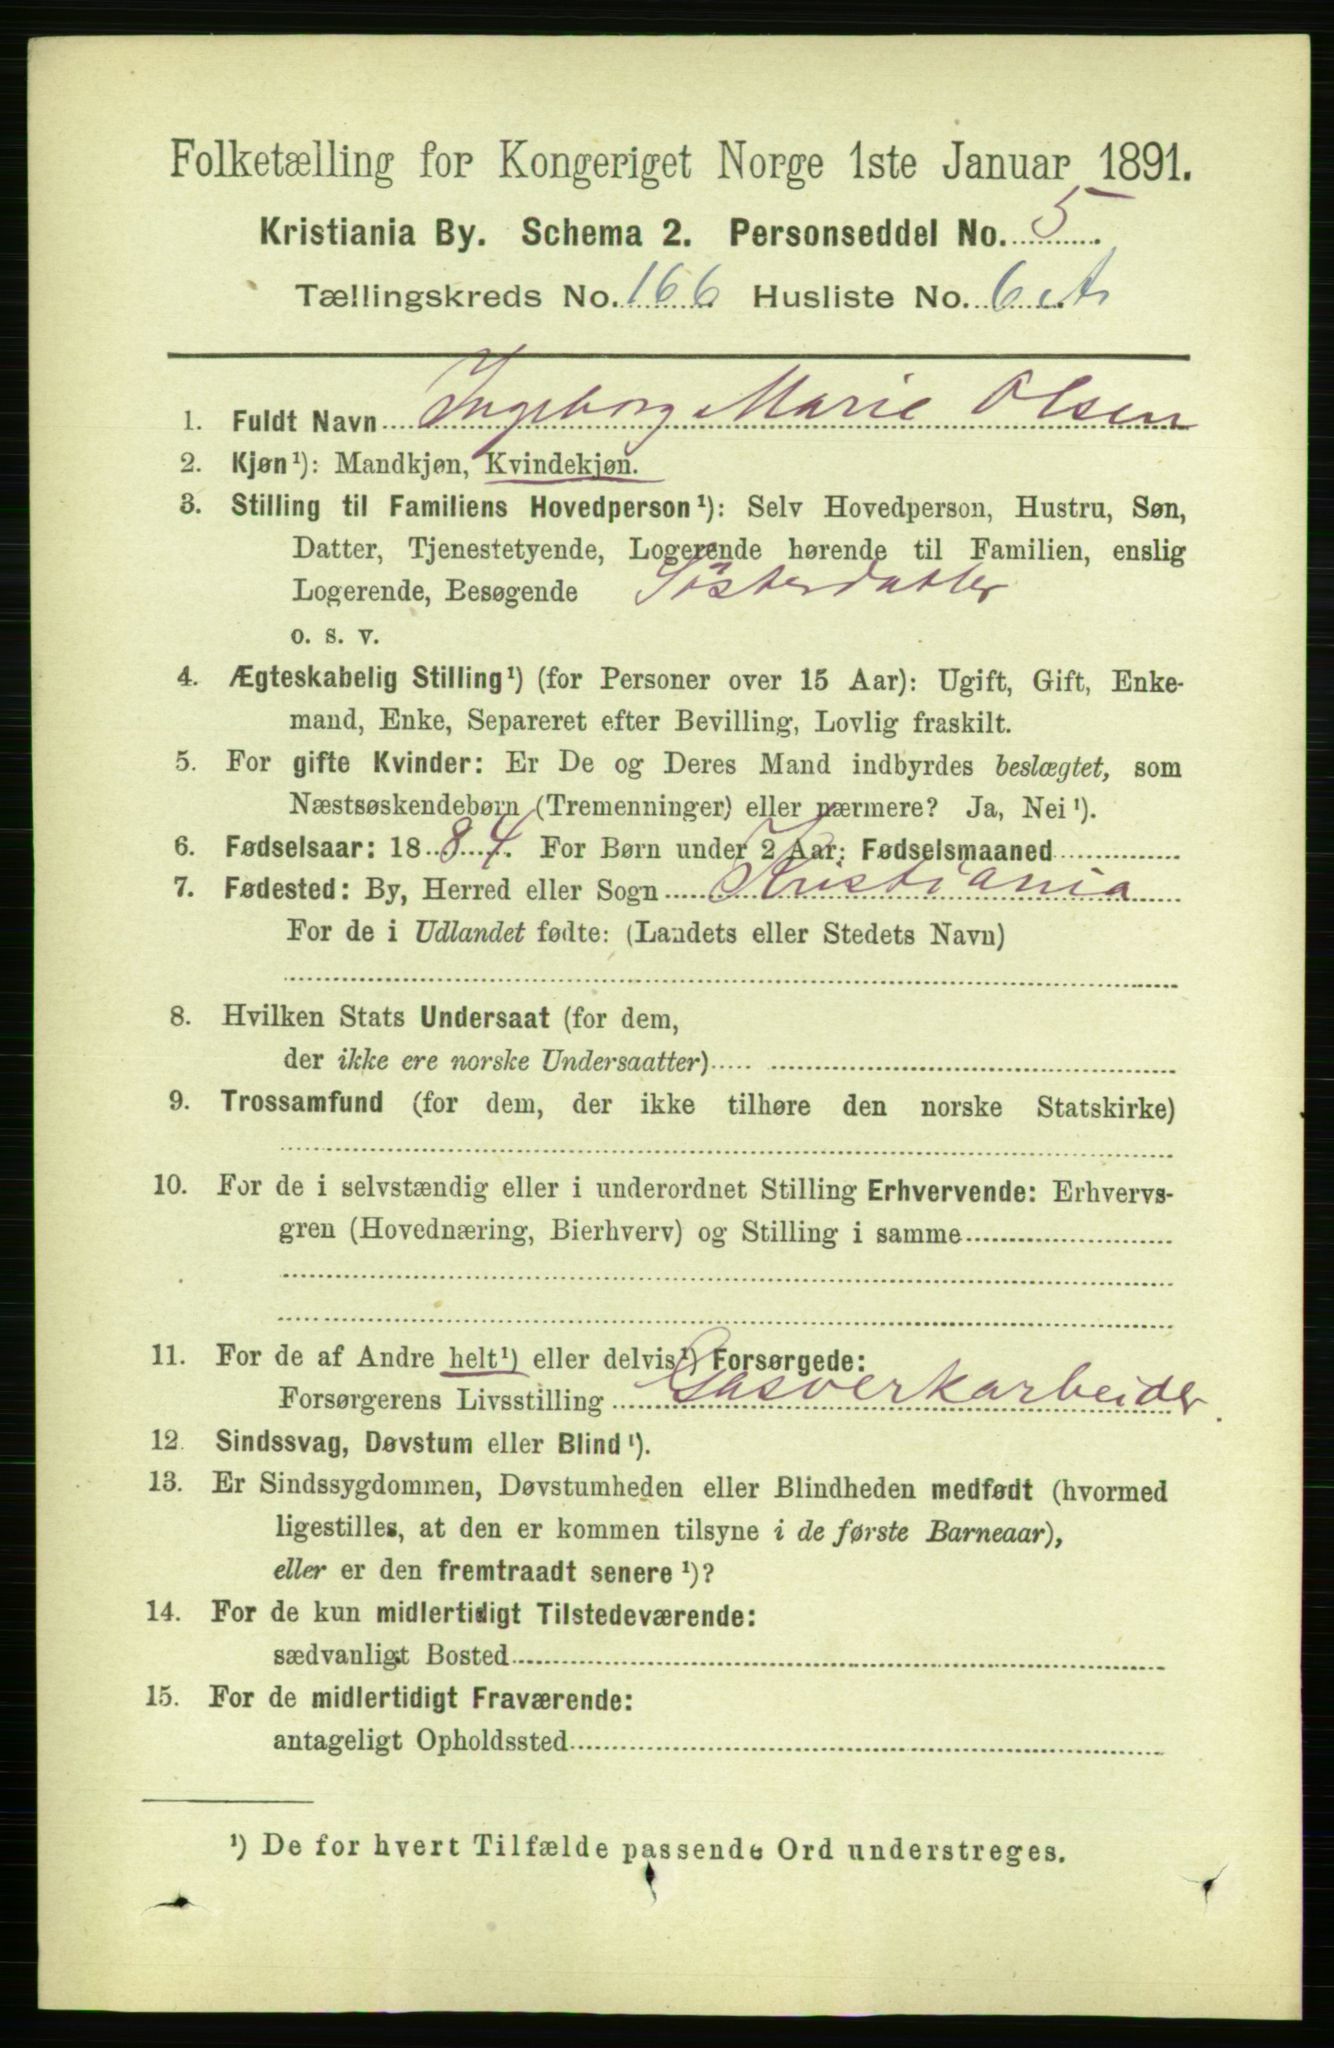 Folketælling for Kongeriget Norge 1ste Januar 1891.
Kristiania By. Schema 2. Personseddel No. 5
Tællingskreds No. 166 Husliste No. 6 A
1. Fuldt Navn Ingeborg Marie Olsen
2. Kjøn¹): Mandkjøn, Kvindekjøn.
3. Stilling til Familiens Hovedperson¹): Selv Hovedperson, Hustru, Søn,
Datter, Tjenestetyende, Logerende hørende til Familien, enslig
Logerende, Besøgende Søsterdatter
o. s. v.
4. Ægteskabelig Stilling¹) (for Personer over 15 Aar): Ugift, Gift, Enke-
mand, Enke, Separeret efter Bevilling, Lovlig fraskilt.
5. For gifte Kvinder: Er De og Deres Mand indbyrdes beslægtet, som
Næstsøskendebørn (Tremenninger) eller nærmere? Ja, Nei¹).
6. Fødselsaar: 1884. For Børn under 2 Aar: Fødselsmaaned
7. Fødested: By, Herred eller Sogn Kristiania
For de i Udlandet fødte: (Landets eller Stedets Navn)
8. Hvilken Stats Undersaat (for dem,
der ikke ere norske Undersaatter)
9. Trossamfund (for dem, der ikke tilhøre den norske Statskirke)
10. For de i selvstændig eller i underordnet Stilling Erhvervende: Erhvervs-
gren (Hovednæring, Bierhverv) og Stilling i samme
11. For de af Andre helt¹) eller delvis¹) Forsørgede:
Forsørgerens Livsstilling Gasverkarbeider.
12. Sindssvag, Døvstum eller Blind¹).
13. Er Sindssygdommen, Døvstumheden eller Blindheden medfødt (hvormed
ligestilles, at den er kommen tilsyne i de første Barneaar),
eller er den fremtraadt senere¹)?
14. For de kun midlertidigt Tilstedeværende:
sædvanligt Bosted
15. For de midlertidigt Fraværende:
antageligt Opholdssted
¹) De for hvert Tilfælde passende Ord understreges.